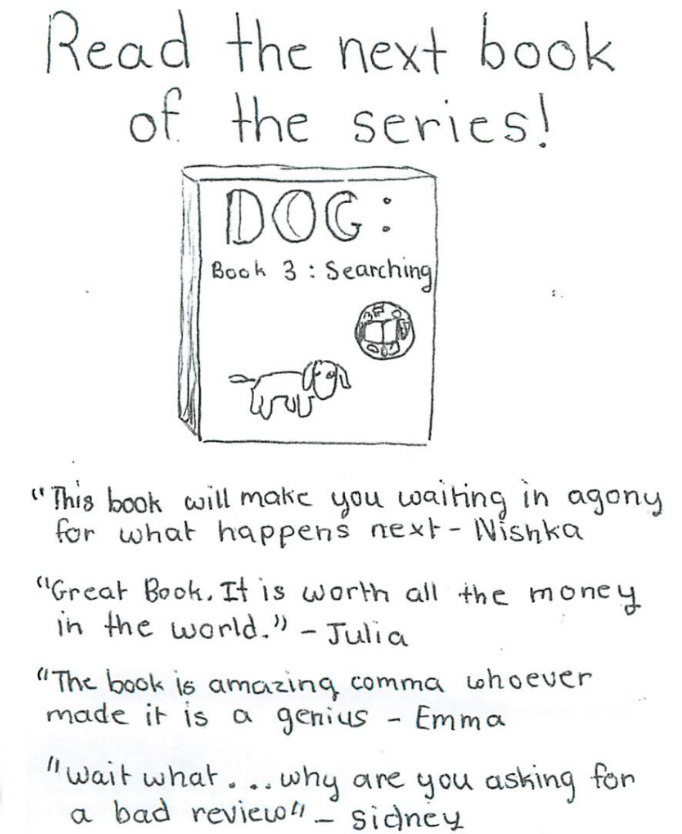 Read the next book
of the series!
DOG:
Book 3 : Searching
"This book will make you waiting in agony
for what happens next - Nishka
"Great Book. It is worth all the money
in the world." - Julia
"The book is amazing comma whoever
made it is a genius - Emma
"wait what... why are you asking for
a bad review" - Sidney